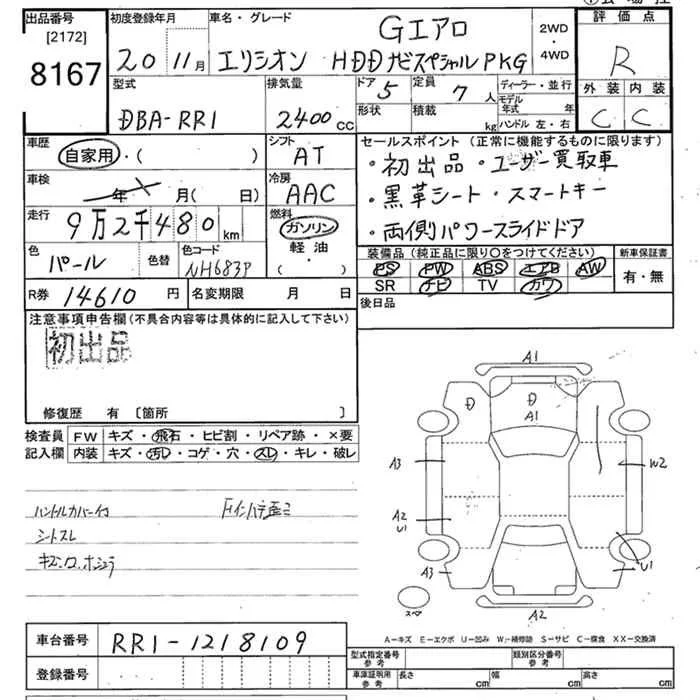 出品番号
[2172]
8167
初度登録年月
20 11月
車名・グレード
Gエアロ
エリシオン HDDナビスペシャルPKG
2WD
・
4WD
評価点
R
外装 内装
C C
型式
DBA-RR1
排気量
2400cc
ドア 5
形状
定員 7人
積載 kg
ディーラー・並行
モデル年式 年
ハンドル 左・右
車歴
自家用・( )
シフト
AT
車検
年 月( 日)
冷房
AAC
走行
9万2千480km
燃料
ガソリン
軽油
・( )
色
パール
色替
色コード
NH683P
R券 14610円
名変期限 月 日
セールスポイント(正常に機能するものに限ります)
・初出品・ユーザー買取車
・黒革シート・スマートキー
・両側パワースライドドア
装備品(純正品に限り○をつけてください)
PS PW ABS エアB AW
SR ナビ TV カワ
新車保証書
有・無
後日品
注意事項申告欄(不具合内容等は具体的に記入して下さい)
初出品
修復歴 有〔箇所 〕
検査員記入欄
FW キズ・飛石・ヒビ割・リペア跡・×要
内装 キズ・汚レ・コゲ・穴・スレ・キレ・破レ
ハンドルカバー付
シトスレ
A1
D
D
A1
A3
W2
A2
U1
A3
U1
スペア
A2
A−キズ E−エクボ U−凹み W−補修跡 S−サビ C−腐食 XX−交換済
車台番号
RR1-1218109
登録番号
型式指定番号
参考
類別区分番号
参考
車庫証明用
参考
長さ cm
幅 cm
高さ cm